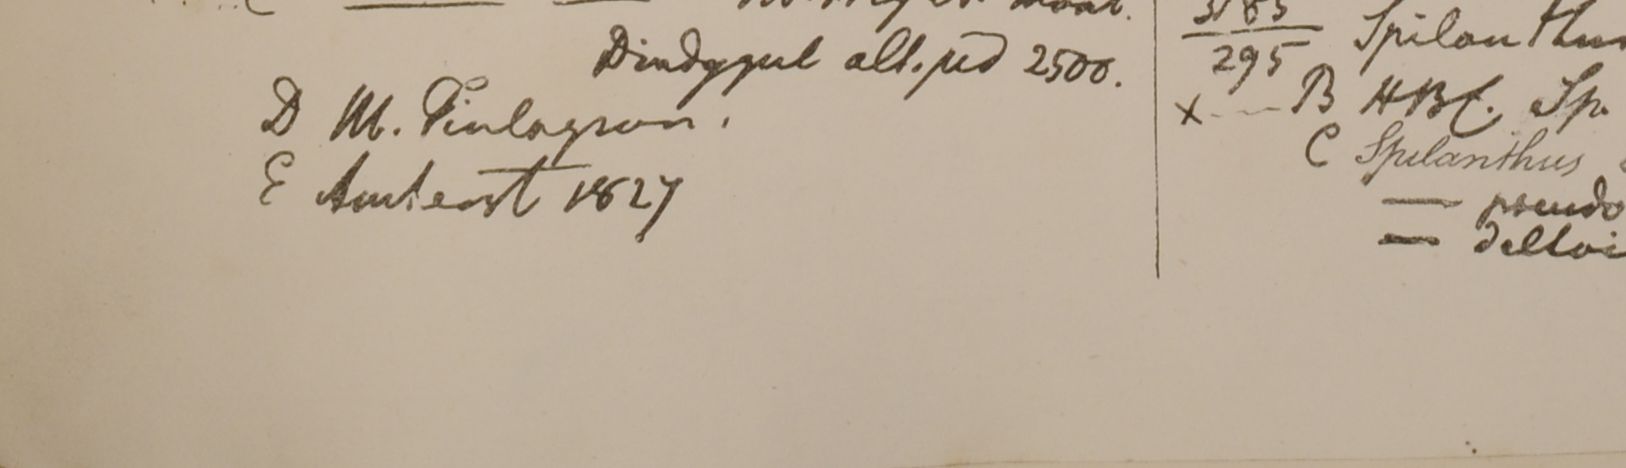 Dindygul alt. ped 2500.
D M. Finlayson.
E Amherst 1827
3185
295
Spilanthu
B HBC. Sp.
C Spilanthus
— pseudo
— deltoi